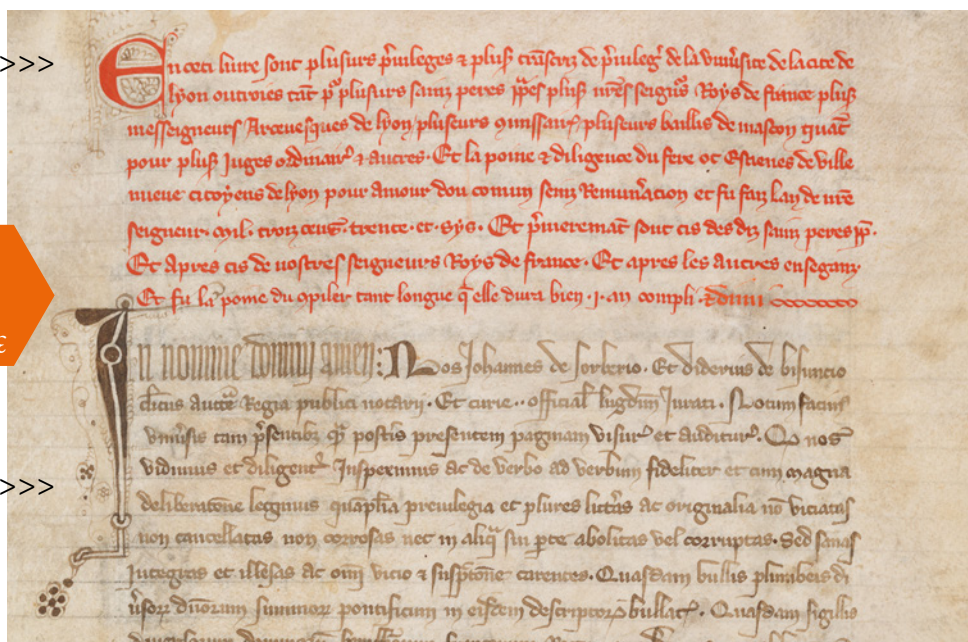 >>>
En cest liure sont plusurs p̄uileges ⁊ plus᷒ t̃nscriz de p̄uileg᷒ de la vniũsite de la cite de
lyon outroies tãt p̱ plusurs sainz peres p̱p̱es plus᷒ nr̃es seigñs Roys de france plus᷒
messeigneurs Arceuesques de lyon plusieurs ꝯmissar᷒ plusieurs baillis de mascon quãt
pour plus᷒ Juges ordinair᷒ ⁊ autres. Et la poine ⁊ diligence du fere ot Estienes de ville
nueue citoyens de lyon pour amour dou comun senz Remun̾acion et fu faiz lan de nr̃e
seigneur. mil. troiz cens. trente. et. sys. Et p̄mieremãt sont cis des diz sain peres p̱p̱.
Et apres cis de nostres seigneurs Roys de france. Et apres les autres enseganz
Et fu la poine du ꝯpiler tant longue q̃ elle dura bien .i. an compli.
In nomine domini amen: Nos Johannes de sorberio. Et diderius de bisuncio
cl̃icus auct̃e Regia publici notarij. Et curie .. official᷒ lugdun̄ Jurati. Notum facim᷒
vniũsis tam p̃sentib᷒ q̃ post̾is presentem paginam visur᷒ et auditur᷒. Q nos
vidimus et diligent̾ Inspeximus ac de verbo ad verbum fideliter et cum magna
deliberatõne legimus quãpl̃ia preuilegia et plures litt̾as ac originalia nõ viciatas
non cancellatas non corrosas nec in aliq̃ sui p̱te abolitas vel corruptas. Sed sanas
Integras et illesas ac om̃i vicio ⁊ susp̃tõne carentes. Quasdam bullis plumbeis
duorum summor᷒ pontificum in eisdem descriptor᷒ bullat᷒. Quasdam sigillis
>>>